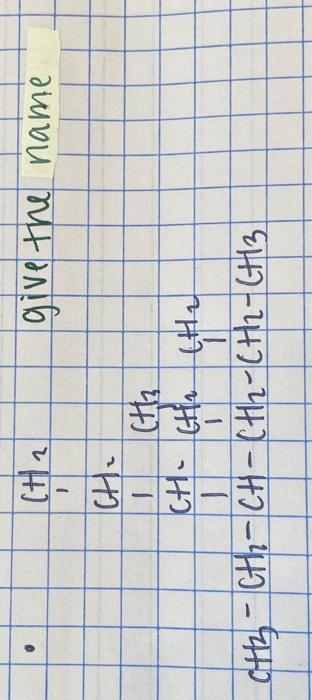 give the name
CH2
CH2
CH3
CH- CH2 CH2
CH3-CH2-CH-CH2-CH2-CH3